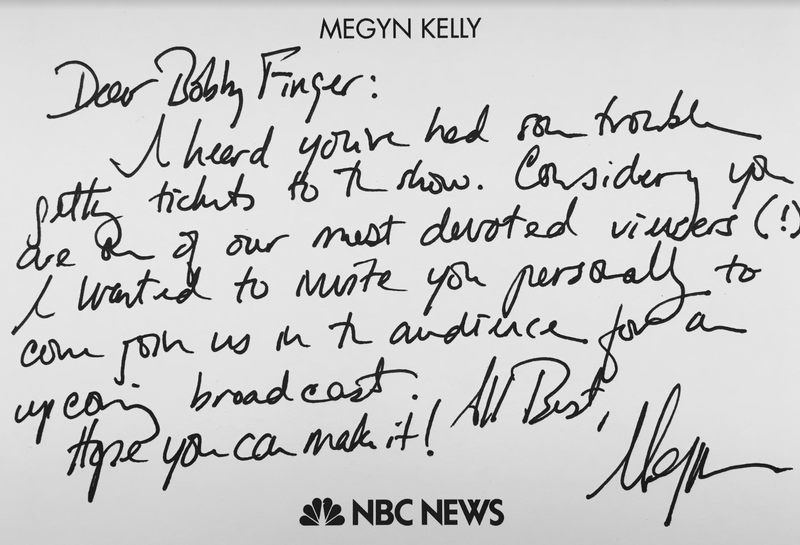 MEGYN KELLY
Dear Bobby Finger:
I heard you've had some trouble
getting tickets to the show. Considering you
are one of our most devoted viewers (!)
I wanted to invite you personally to
come join us in the audience for an
upcoming broadcast.
Hope you can make it! All Best,
Megyn
NBC NEWS